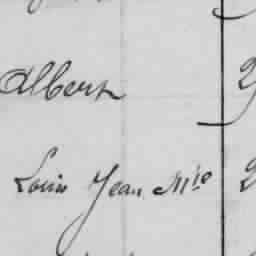 Albert
Louis Jean